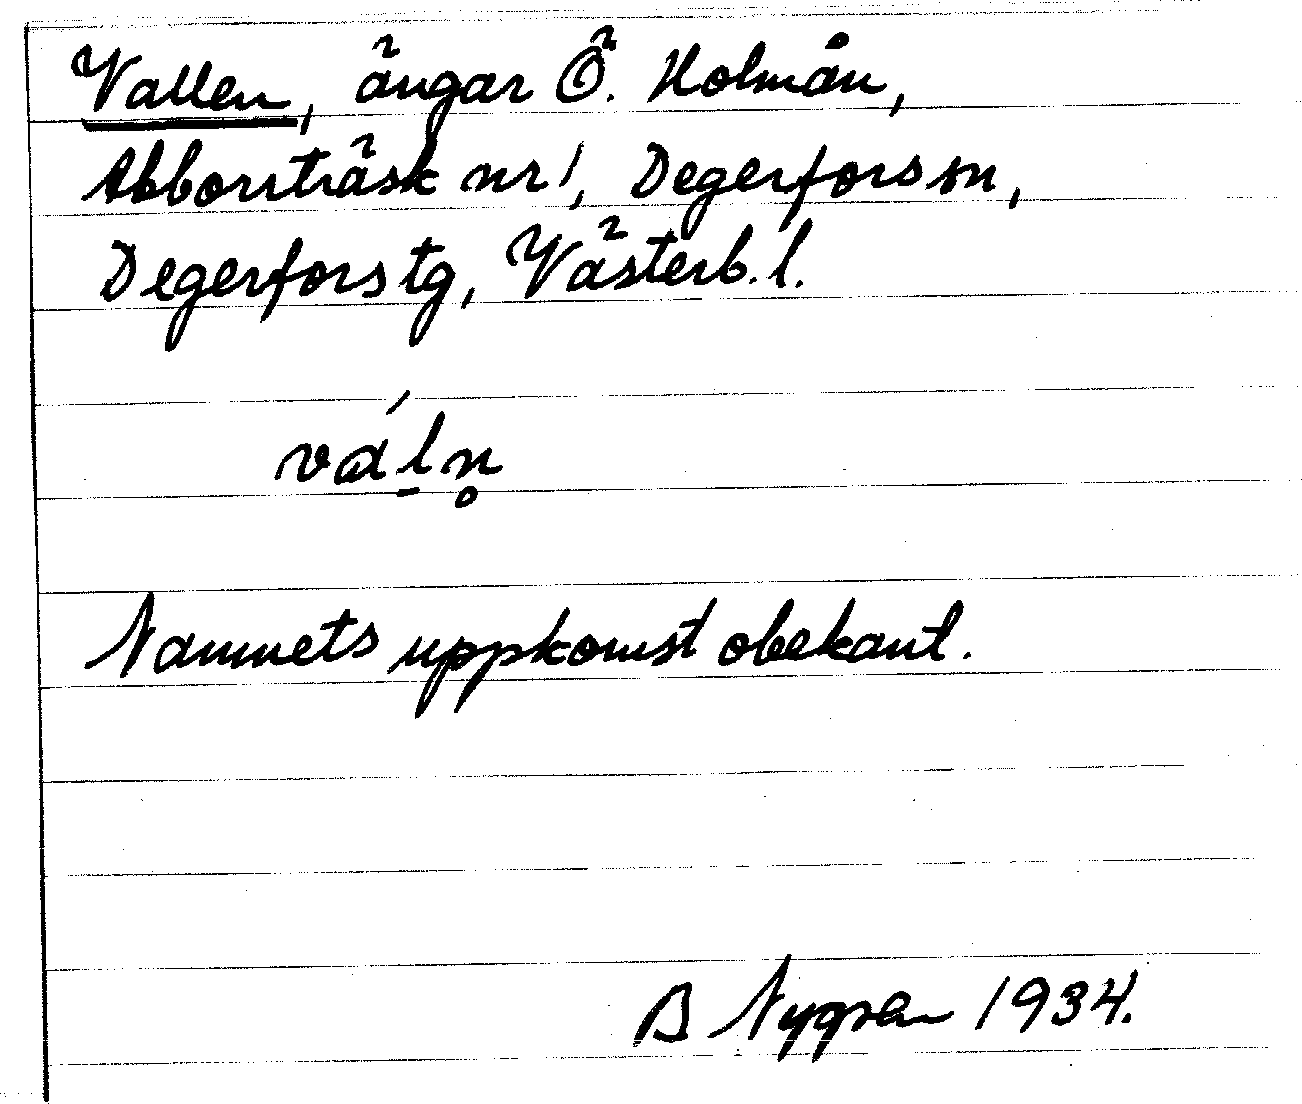 Vallen, ängar Ö. Holmån,
Abborrträsk nr 1, Degerfors sn,
Degerfors tg, Västerb. l.
vál̠n̥
Namnets uppkomst obekant.
B Nygren 1934.